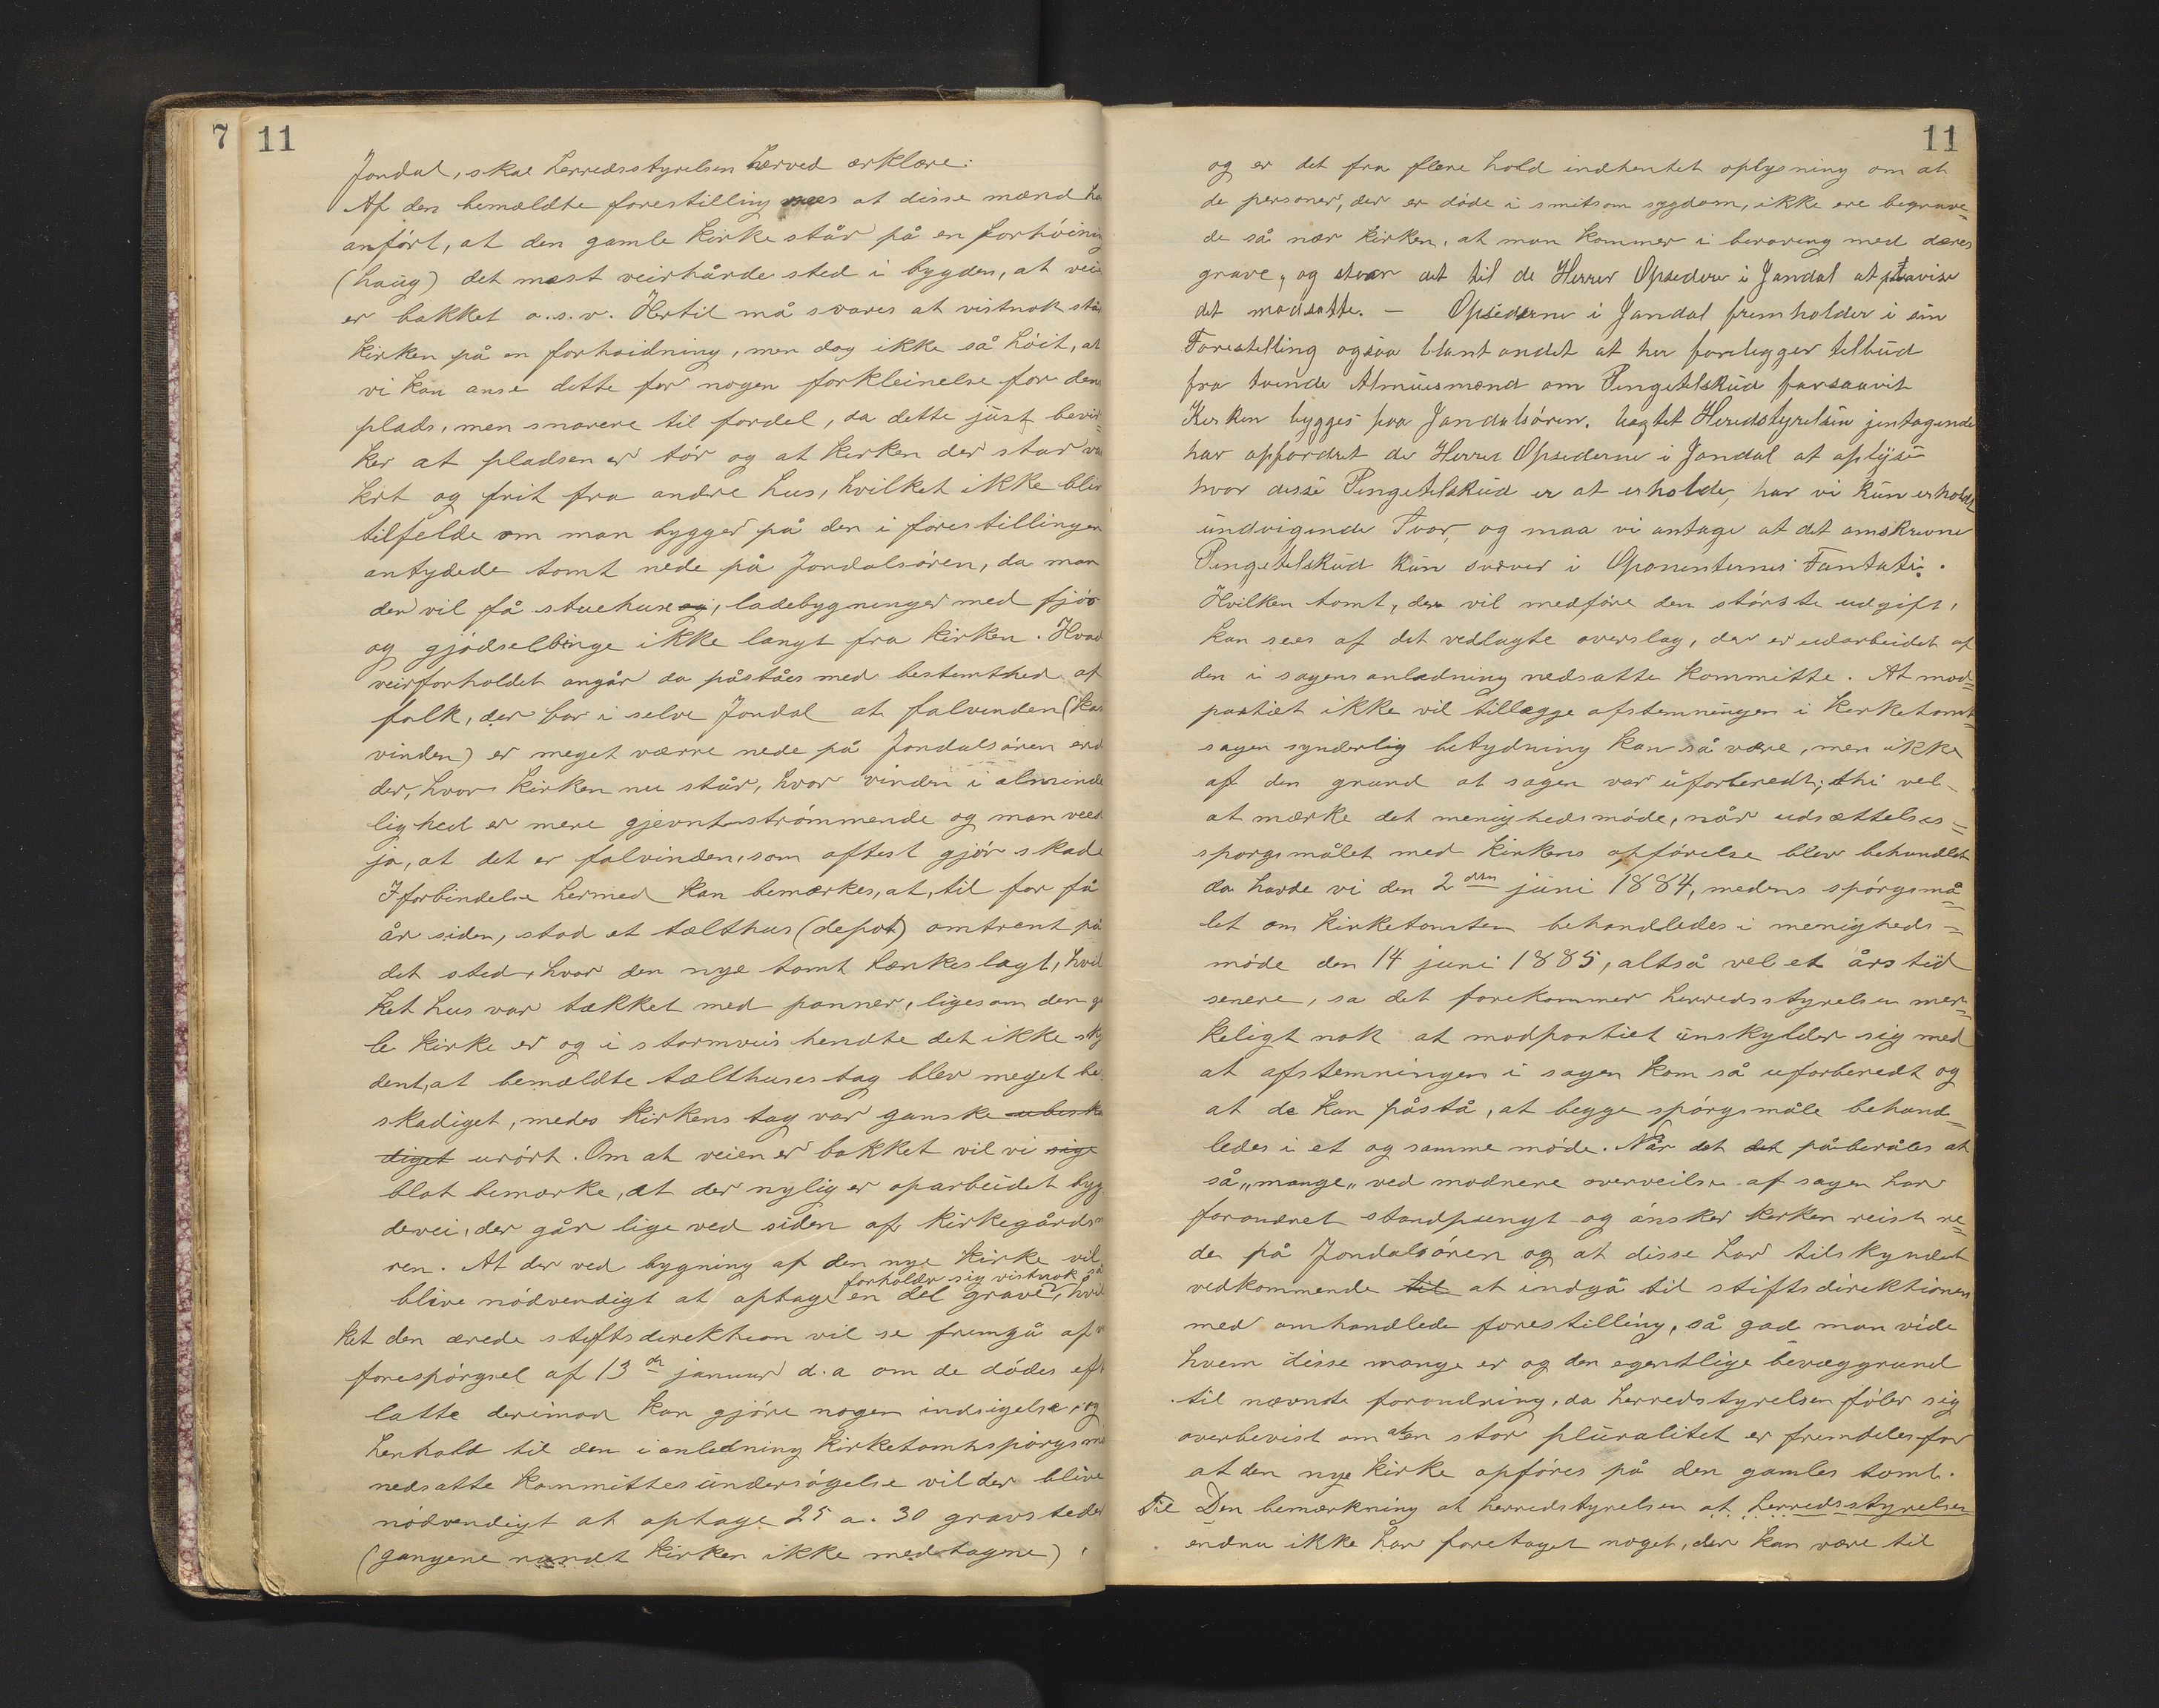 7 11
Jondal, skal herredsstyrelsen herved erklære:
Af den bemældte forestilling sees at disse mænd ha
anført, at den gamle kirke står på en forhöining
(haug) det mest veirhårde sted i bygden, at veien
er bakket o.s.v. Hertil må svares at vistnok står
kirken på en forhoidning, men dog ikke så höit, at
vi kan anse dette for nogen forkleinelse for den
plads, men snarere til fordel, da dette just bevir=
ker at pladsen er tör og at kirken der star va
kert og frit fra andre hus, hvilket ikke blir
tilfelde om man bygger på den i forestillingen
antydede tomt nede på Jondalsören, da man
der vil få stuehuse og, ladebygninger med fjös
og gjödselbinge ikke langt fra kirken. Hvad
veirforholdet angår da påståes med bestemthed af
folk, der bor i selve Jondal at falvinden (kas
vinden) er meget værre nede på Jondalsören end
der, hvor kirken nu står, hvor vinden i alminde
lighed er mere gjevnt strömmende og man veed
jo, at det er falvinden, som oftest gjör skade
I forbindelse hermed kan bemærkes, at, til for få
år siden, stod et tælthus (depot) omtrent på
det sted, hvor den nye tomt tænkes lagt, hvil
ket hus var tækket med panner, ligesom den ga
le kirke er og i stormveir hendte det ikke sky
dent, at bemældte tælthuses tag blev meget be
skadiget, medes kirkens tag var ganske ubeska
diget urört. Om at veien er bakket vil vi sige
blot bemærke, at der nylig er oparbeidet byg
devei, der går lige ved siden af kirkegårds
ren. At der ved bygning af den nye kirke vil
forholder sig vistnok så
blive nödvendigt at optage en del grave, hvil
ket den ærede stiftsdirektion vil se fremgå af v
forespörgsel af 13de januar d.a om de dödes eft
latte derimod kan gjöre nogen indsigelse, og
henhold til den i anledning kirketomtspörgsmå
nedsatte kommittes undersögelse vil der blive
nödvendigt at optage 25 a. 30 gravsteder
(gangene rundt kirken ikke medtagene),
11
og er det fra flere hold indhentet oplysning om at
de personer, der er döde i smitsom sygdom, ikke ere begrave=
de så nær kirken, at man kommer i beröring med deres
grave, og staar det til de Herrer Opsedere i Jondal at påvise
det modsatte. — Opsiderne i Jondal fremholder i sin
Forestelling ogsaa blant andet at her foreligger tilbud
fra tvende Almuesmænd om Pengetilskud forsaavit
Kirken bygges paa Jondalsören. Uagtet Heredstyrelsen jentagende
har opfordret de Herrer Opsederne i Jondal at oplyse
hvor disse Pengetelskud er at erholde, har vi kun erholdt
undvigende Svar, og maa vi antage at det omskrevne
Pengetelskud kun svæver i Oponenternes Fantasi.
Hvilken tomt, der vil medföre den störste udgift,
kan sees af det vedlagte overslag, der er udarbeidet af
den i sagens anledning nedsatte kommitte. At mod=
partiet ikke vil tillægge afstemningen i kirketomt=
sagen synderlig betydning kan så være, men ikke
af den grund at sagen var uforberedt; thi vel
at mærke det menighedsmöde, når udsættelses=
sporgsmålet med kirkens opförelse blev behandlet
da havde vi den 2den juni 1884, medens spörgsmå=
let om kirketomten behandledes i menigheds=
möde den 14 juni 1885, altså vel et års tid
senere, sa det forekommer herredsstyrelsen mer=
keligt nok at modpartiet unskylder sig med
at afstemningen i sagen kom så uforberedt og
at de kan påstå, at begge spörgsmåle behand=
ledes i et og samme möde. Når det det påberåles at
så „mange„ ved modnere overveilse af sagen har
forandret standpungt og önsker kirken reist ne=
de på Jondalsören og at disse har tilskyndet
vedkommende til at indgå til stiftsdirektionen
med omhandlede forestilling, så gad man vide
hvem disse mange er og den egentlige bevæggrund
til nævnte forandring, da herredstyrelsen föler sig
overbevist om at en stor pluralitet er fremdeles for
at den nye kirke opföres på den gamles tomt.
Til Den bemærkning at herredstyrelsen at herredsstyrelsen
endnu ikke har foretaget noget, der kan være til